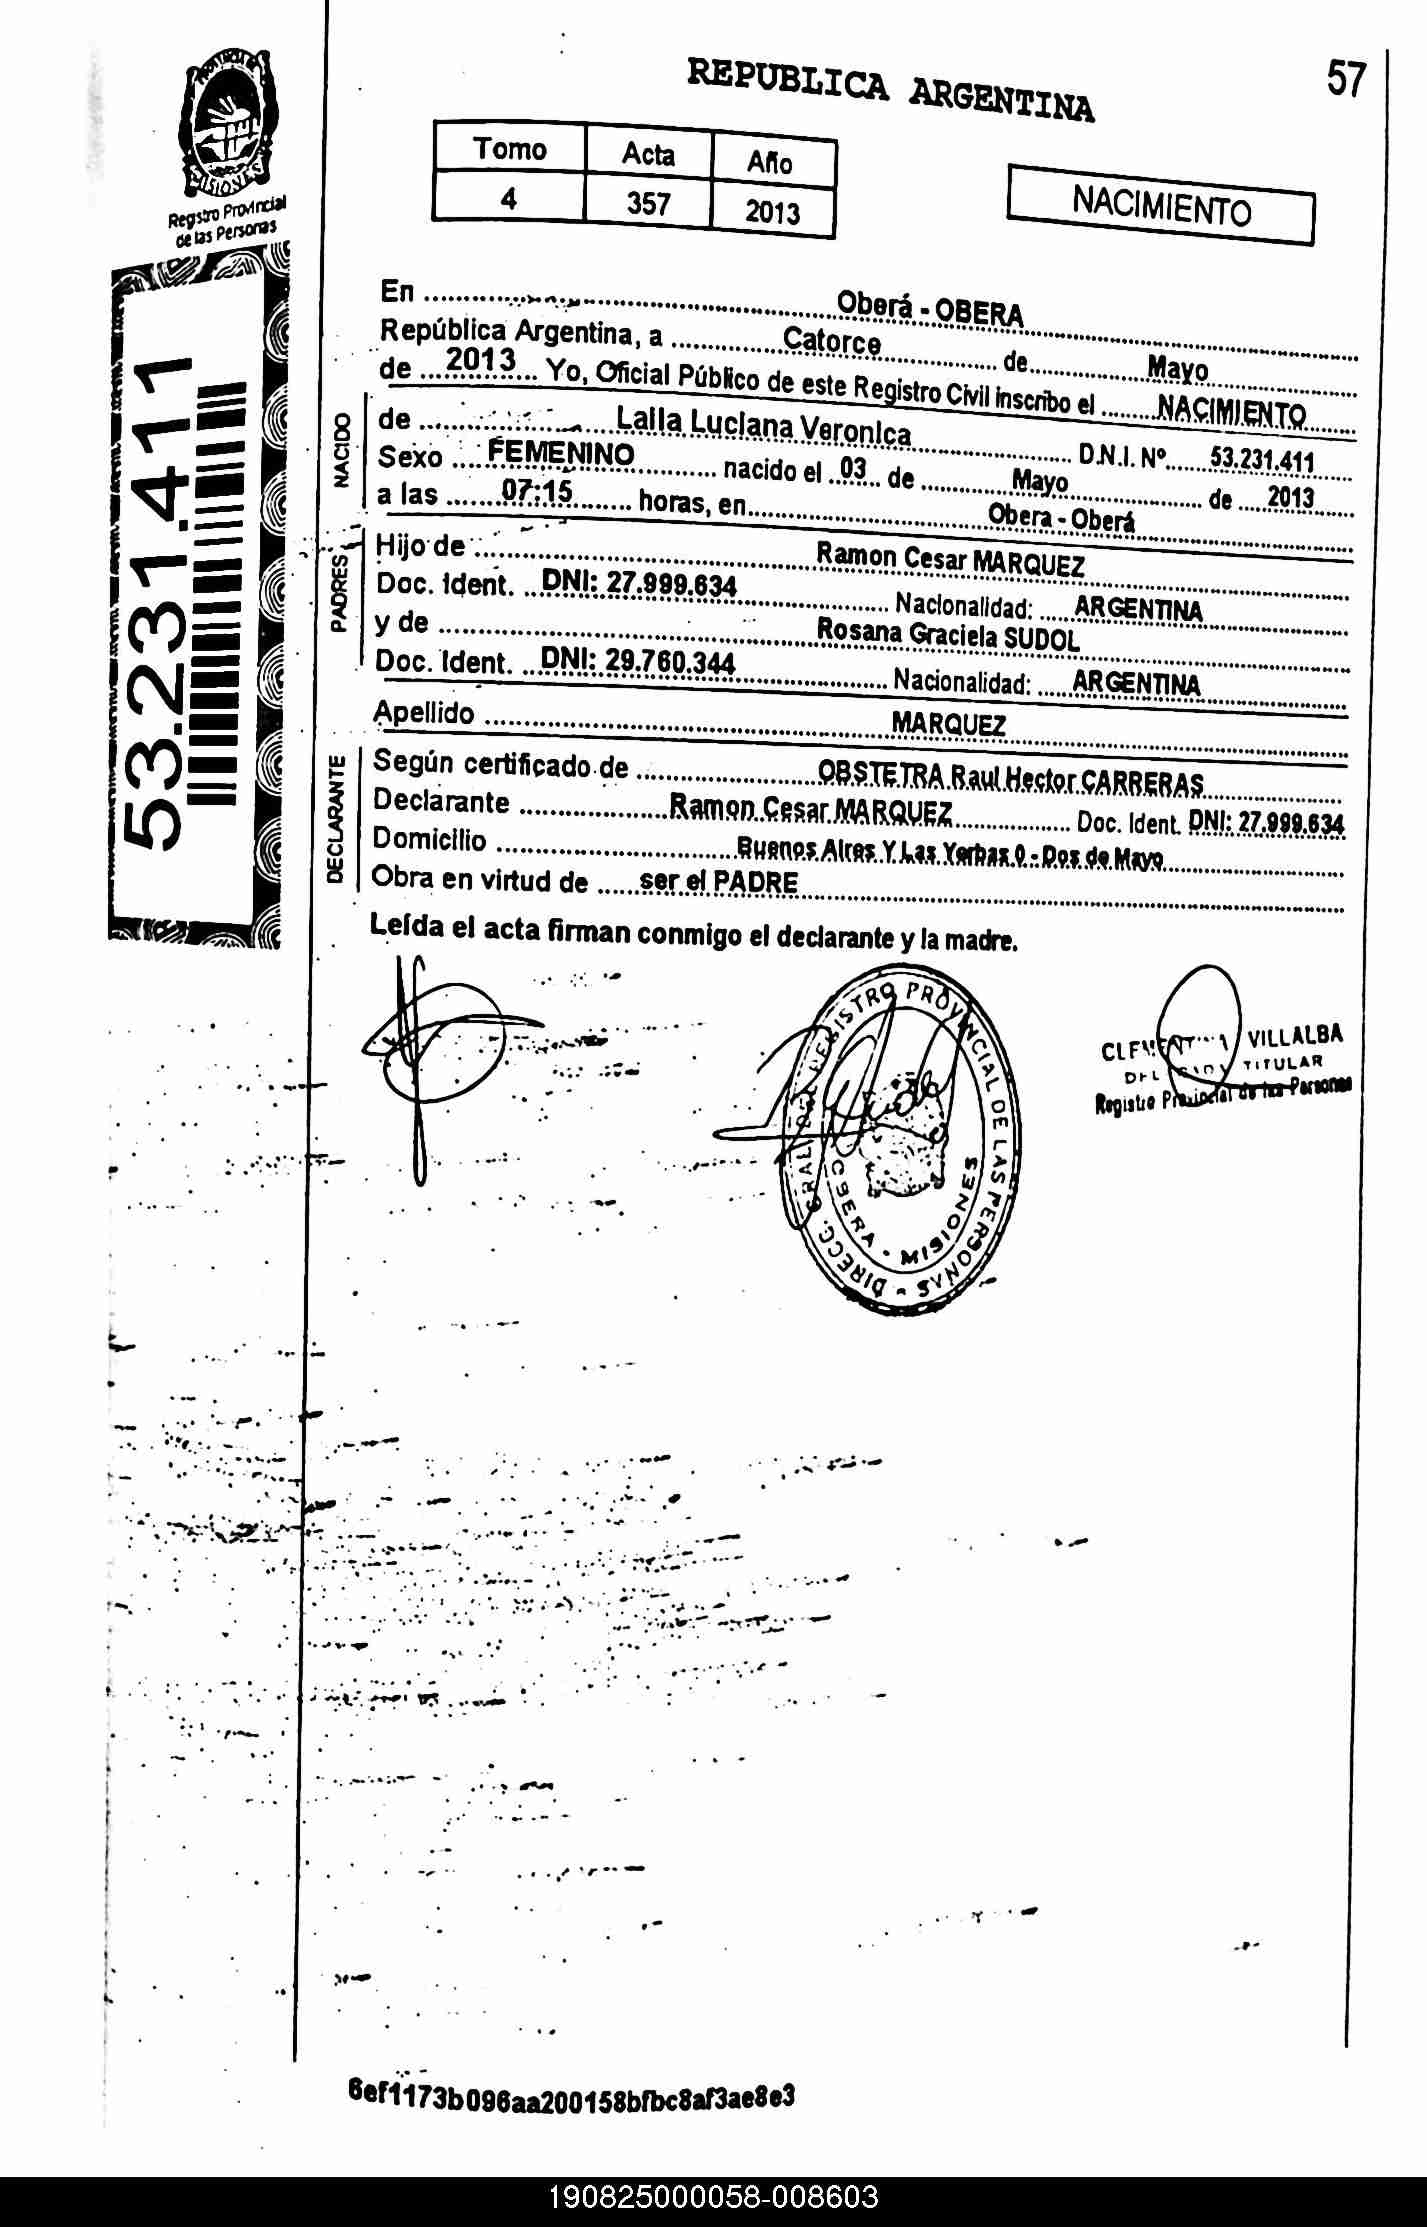 REPUBLICA ARGENTINA
57
PROVINCIA DE
MISIONES
Registro Provincial
de las Personas
Tomo Acta Año
4 357 2013
NACIMIENTO
53.231.411
En Oberá - OBERA
República Argentina, a Catorce de Mayo
de 2013 Yo, Oficial Público de este Registro Civil inscribo el NACIMIENTO
NACIDO
de Lalla Luciana Veronica D.N.I. Nº 53.231.411
Sexo FEMENINO nacido el 03 de Mayo de 2013
a las 07:15 horas, en Obera - Oberá
PADRES
Hijo de Ramon Cesar MARQUEZ
Doc. Ident. DNI: 27.999.634 Nacionalidad: ARGENTINA
y de Rosana Graciela SUDOL
Doc. Ident. DNI: 29.760.344 Nacionalidad: ARGENTINA
Apellido MARQUEZ
DECLARANTE
Según certificado de OBSTETRA Raul Hector CARRERAS
Declarante Ramon Cesar MARQUEZ Doc. Ident. DNI: 27.999.634
Domicilio Buenos Aires Y Las Yerbas 0 - Dos de Mayo
Obra en virtud de ser el PADRE
Leída el acta firman conmigo el declarante y la madre.
DIRECC. GRAL. DEL REGISTRO PROVINCIAL DE LAS PERSONAS
OBERA - MISIONES
VILLALBA
TITULAR
Registro Provincial de las Personas
6ef1173b096aa200158bfbc8af3ae8e3
190825000058-008603